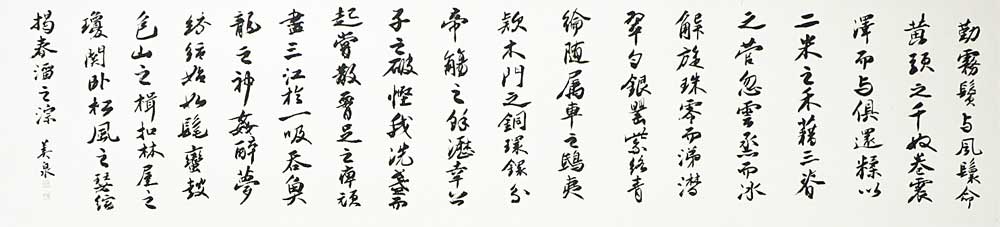 勤霧鬢与風鬟命
黄頭之千奴巻震
澤而与俱還糅以
二米之禾藉三脊
之菅忽雲蒸而冰
解旋珠零而涕潸
翠勺銀罌紫絡青
綸随属車之鴟夷
款木門之銅環分
帝觴之餘瀝幸公
子之破慳我洗盞而
起嘗散足之痺頑
盡三江於一吸呑魚
龍之神姦醉夢
紛紜始如髦蠻鼓
包山之楫扣林屋之
瓊関卧松風之瑟縮
揭春溜之淙
美泉